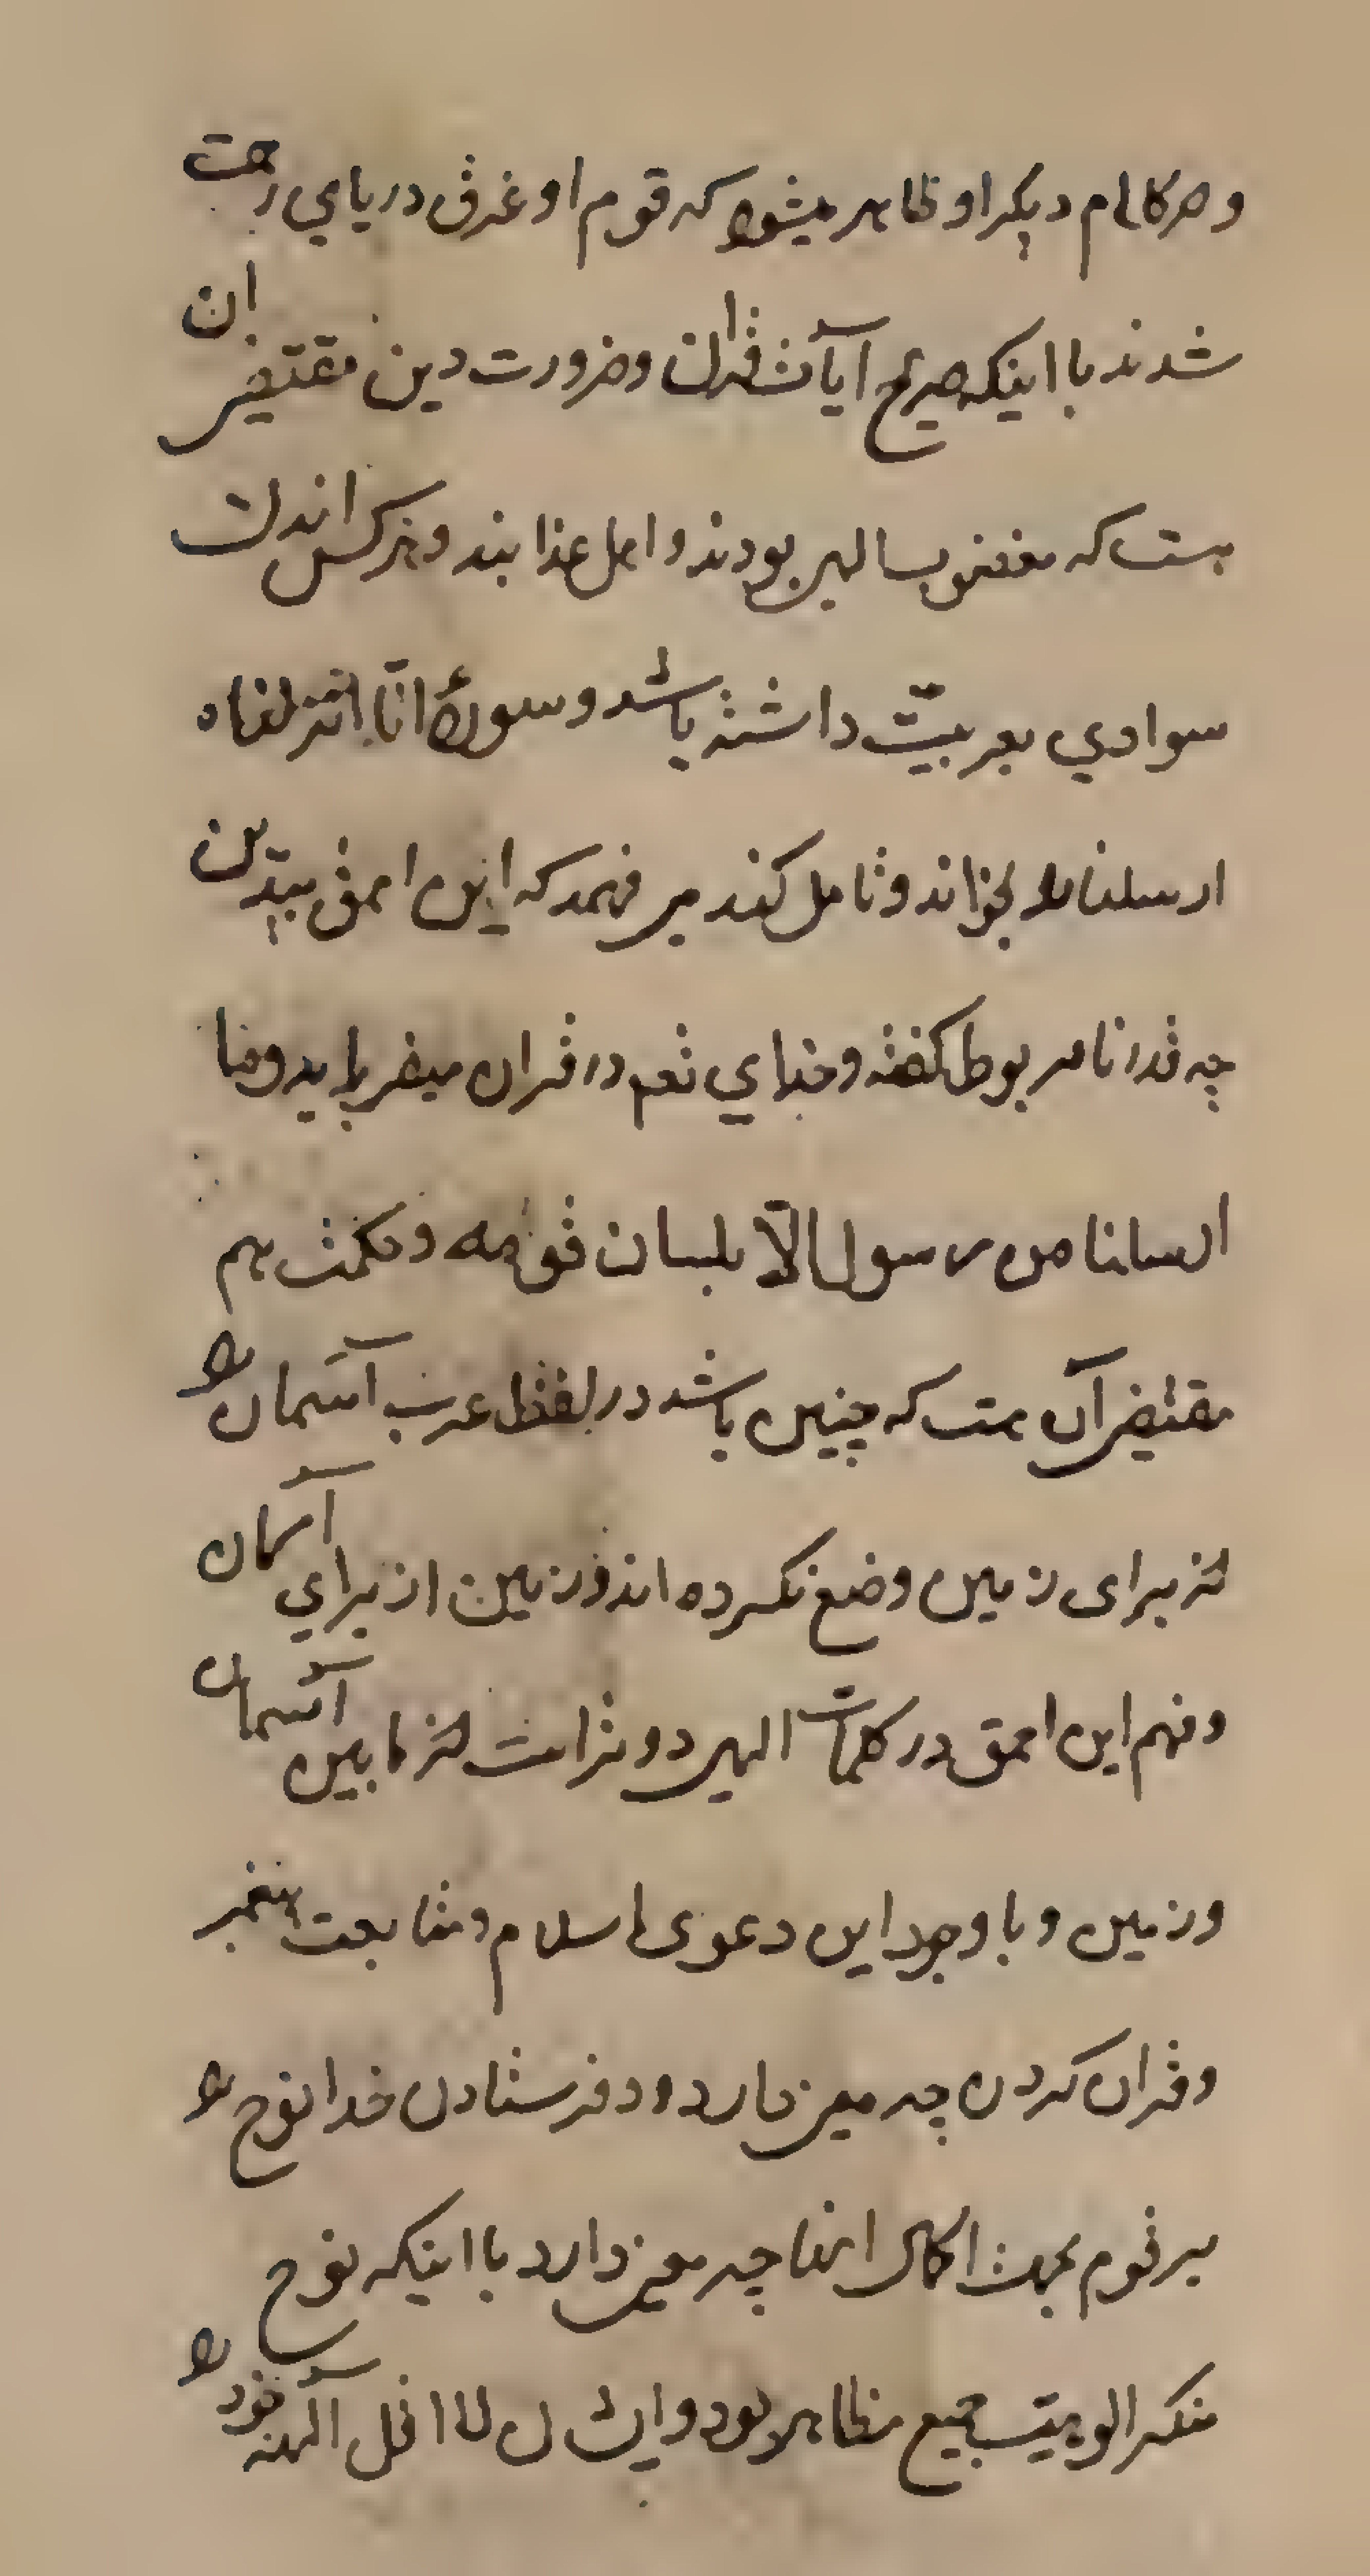 و در کلام دیگر او ظاهر میشود که قوم او غرق دریای رحمت
شدند با اینکه صریح آیات قرآن و ضرورت دین مقتضی ان
هست که مغضوب الهی بودند و اهل عذابند و هر کس اندک
سوادی بعربیّت داشته باشد و سورهٔ انّا انزلناه
ارسلنا را بخواند و تامل کند می فهمد که این احمق بیدین
چه قدر نامربوط گفته و خدای تعم در قران میفرماید وما
ارسلنا من رسول الّا بلسان قومه و حکمت هم
مقتضی آن هست که چنین باشد در لفظ عرب آسمان را
از برای زمین وضع نکرده اند و زمین از برای آسمان
و فهم این احمق در کلمات الهی دورتر است از مابین آسمان
و زمین و با وجود این دعوی اسلام و متابعت پیغمبر
و قران کردن چه معنی دارد و فرستادن خدا نوح را
بر قوم بجهت اکمال اینها چه معنی دارد با اینکه نوح
منکر الوهیّت جمیع مظاهر بود و ایشان لااقل آلهه خود را